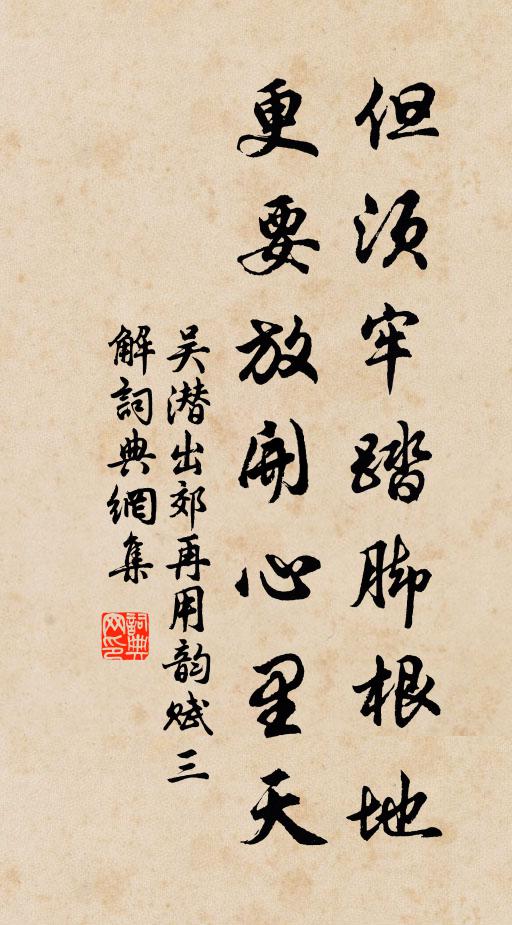 但须牢踏脚根地
更要放開心里天
吴潜出郊再用韵赋三
解詞典網集
詞典网印